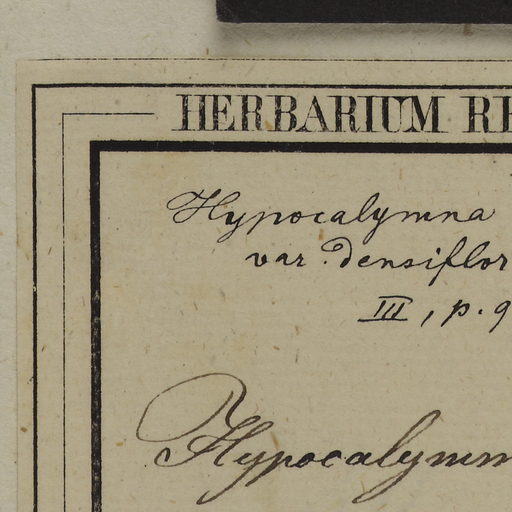 HERBARIUM RE
Hypocalymna
var. densiflor
III, p. 9
Hypocalymm